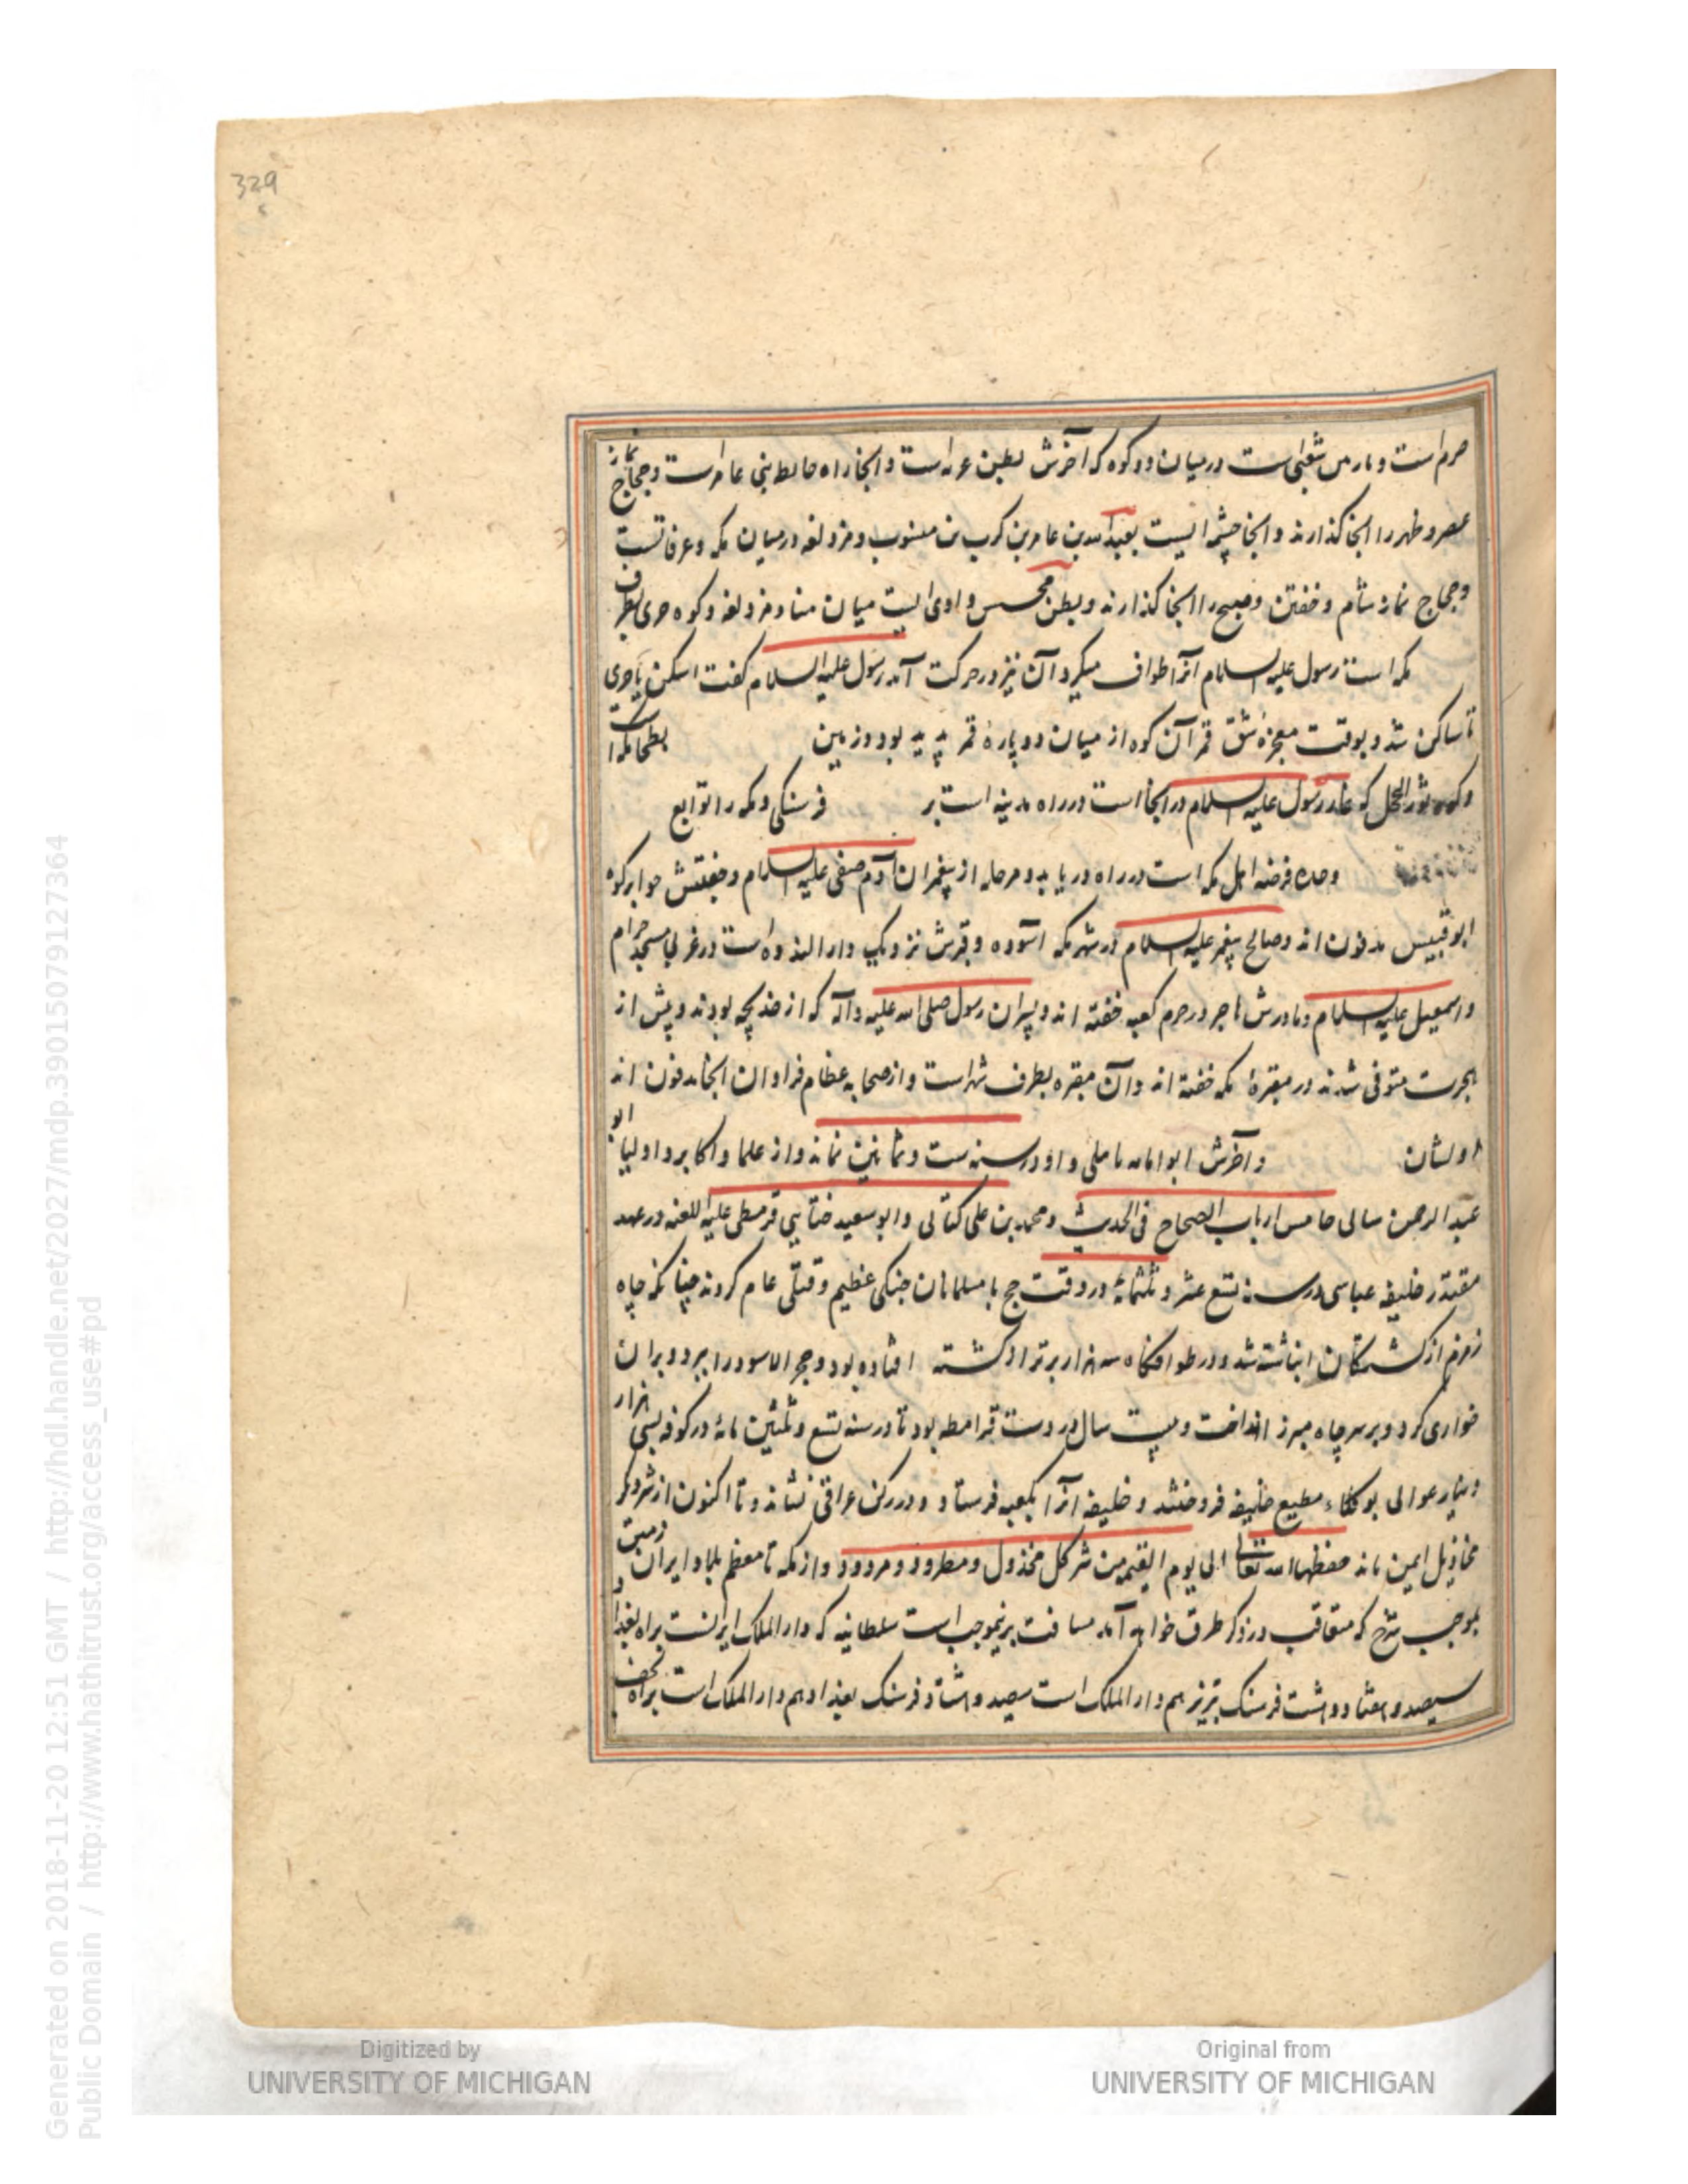 329
حرم است و مازمین شعبی است در میان دو کوه که آخرش ببطن عرنه است و آنجا راه حائط بنی عامر است و حجاج نماز
عصر و ظهر را آنجا گذارند و آنجا چشمه ایست بعبدالله بن عامر بن کریب منسوب و مزدلفه در میان مکه و عرفاتست
و حجاج نماز شام و خفتن و صبح را آنجا گذارند و بطن محسر وادی ایست میان منا و مزدلفه و کوه حری بطرف
مکه است رسول علیه السلام آنرا طواف میکرد آن نیز در حرکت آمد رسول علیه السلام گفت اسکن یا حری
تا ساکن شد و بوقت معجزه شق قمر آن کوه از میان دو پاره قمر پدید بود و زمین بطحا مکه است
و کوه ثور اطحل که غار رسول علیه السلام در آنجا است در راه مدینه است بر فرسنگی و مکه را توابع
و جده فرضه اهل مکه است در راه دریا بدو مرحله از پیغمبران آدم صفی علیه السلام و جفتش حوا بر کوه
ابو قبیس مدفون اند و صالح پیغمبر علیه السلام در شهر مکه آسوده و قبرش نزدیک دار الندوه است در غربی مسجد حرام
و اسمعیل علیه السلام و مادرش هاجر در حرم کعبه خفته اند و پسران رسول صلی الله علیه و آله که از خدیجه بودند و پیش از
هجرت متوفی شدند در مقبره مکه خفته اند و آن مقبره بطرف شهر است و از صحابه عظام فراوان آنجا مدفون اند
اولشان و آخرش ابو امامه باهلی و او در سنه ست و ثمانین نماند و از علما و اکابر و اولیا ابو
عبد الرحمن سالی خامس ارباب الصحاح فی الحدیث و محمد بن علی کتانی و ابو سعید جنابی قرمطی علیه اللعنه در عهد
مقتدر خلیفه عباسی در سنه تسع عشر و ثلثمائه در وقت حج با مسلمانان جنگی عظیم و قتلی عام کردند چنانکه چاه
زمزم از کشتگان انباشته شد و در طوافگاه سه هزار برتر از کشته افتاده بود و حجر الاسود را ببرد و بران
خواری کرد و بر سر چاه مبرز انداخت و بیست سال در دست قرامطه بود تا در سنه تسع و ثلثین مائه در کوفه بسی هزار
دینار عوالی بوکلاء مطیع خلیفه فروختند و خلیفه آنرا بکعبه فرستاد و در رکن عراقی نشاند و تا اکنون از شر دیگر
مخاذیل ایمن ماند حفظها الله تعالی الی یوم القیمة من شر کل مخذول و مطرود و مردود و از مکه تا معظم بلاد ایران زمین
بموجب شرح که متعاقب در ذکر طرق خواهد آمد مسافت برینموجب است سلطانیه که دار الملک ایرانست براه بغداد
سیصد و هفتاد و هشت فرسنگ تبریز هم دار الملک است سیصد و هشتاد فرسنگ بغداد هم دار الملک است براه نجف
Generated on 2018-11-20 12:51 GMT / http://hdl.handle.net/2027/mdp.39015079127364
Public Domain / http://www.hathitrust.org/access_use#pd
Digitized by
UNIVERSITY OF MICHIGAN
Original from
UNIVERSITY OF MICHIGAN